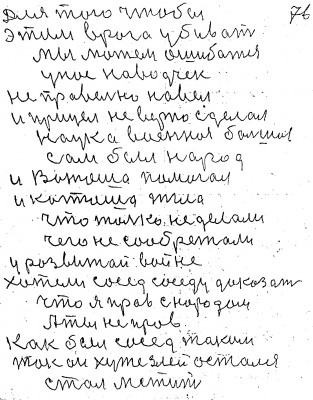 Для того чтобы 76
этим врага убиват
мыможем ошибатся
уное наводчек
не правелно навел
и прицел не верно сделал
Наука военноя болшоя
сам был народ
и Вотюша помогал
и котюша жгла
что толко не делали
чего не сообретали
у розвытай войне
хотели сосед соседу доказат
что я прав с народом
А ты не пров
Как был сосед таким
так он хуже злей остался
стал мстит